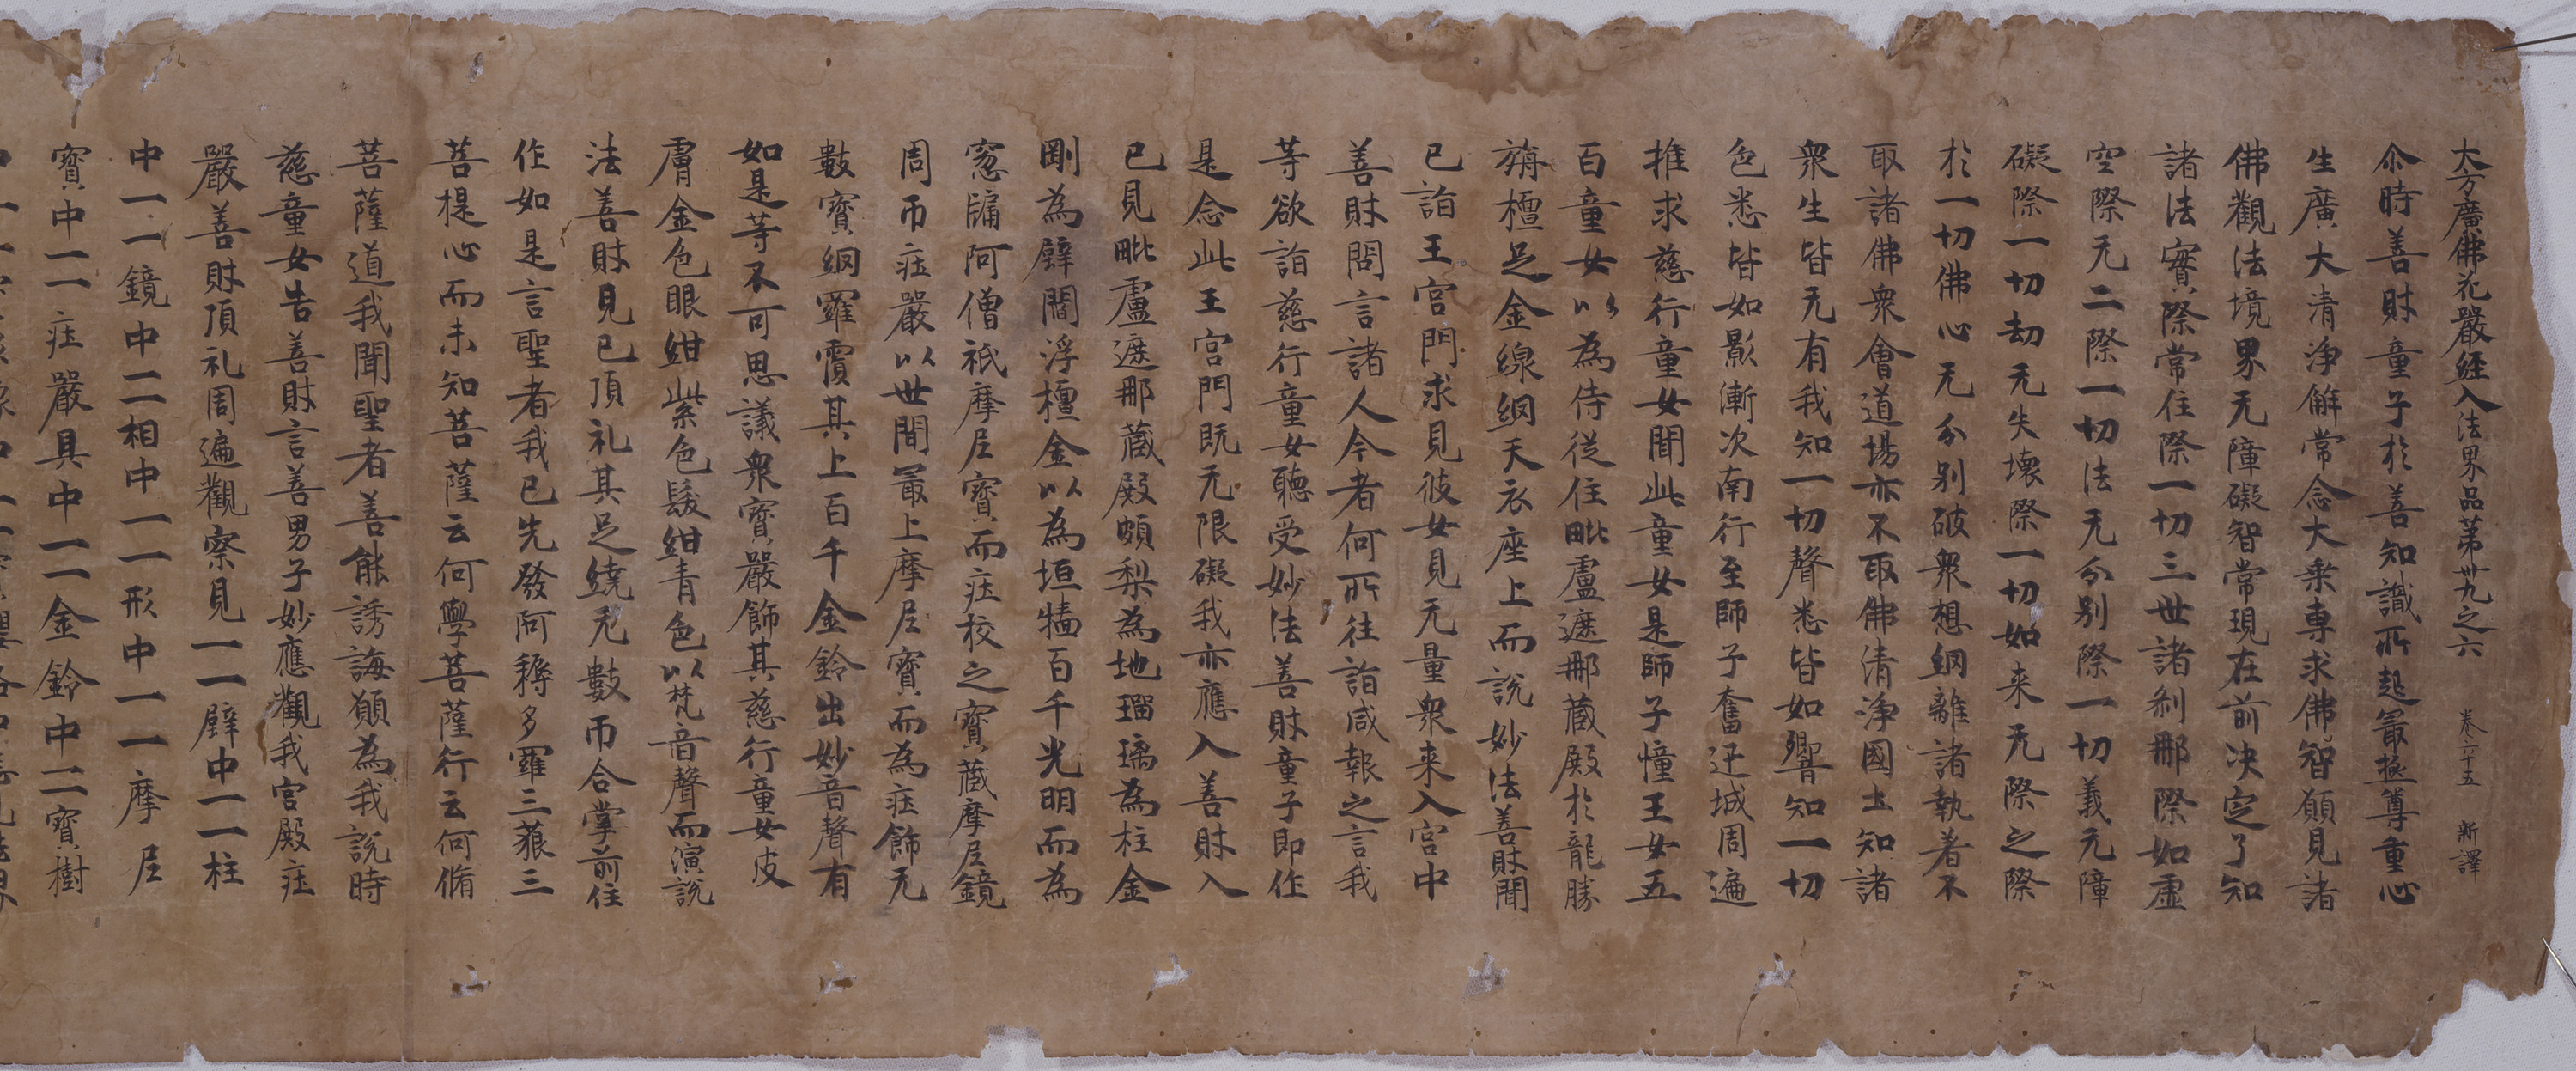 大方廣佛花嚴經入法界品第卅九之六 卷六十五 新譯
尒時善財童子於善知識所起㝡極尊重心
生廣大清淨解常念大乘専求佛智願見諸
佛觀法境界无障礙智常現在前決定了知
諸法實際常住際一切三世諸剎那際如虛
空際无二際一切法无分別際一切義无障
礙際一切劫无失壞際一切如来无際之際
於一切佛心无分别破衆想網離諸執著不
取諸佛衆會道場亦不取佛清淨國土知諸
衆生皆无有我知一切聲悉皆如響知一切
色悉皆如影漸次南行至師子奮迅城周遍
推求慈行童女聞此童女是師子幢王女五
百童女以為侍從住毗盧遮那藏殿於龍勝
栴檀足金線網天衣座上而說妙法善財聞
已詣王宮門求見彼女見无量衆来入宮中
善財問言諸人今者何所往詣咸報之言我
等欲詣慈行童女聽受妙法善財童子即作
是念此王宮門既无限礙我亦應入善財入
已見毗盧遮那藏殿頗梨為地瑠璃為柱金
剛為壁閻浮檀金以為垣牆百千光明而為
窓牖阿僧祇摩尼寶而莊校之寶藏摩尼鏡
周帀莊嚴以世間㝡上摩尼寶而為莊飾无
數寶網羅覆其上百千金鈴出妙音聲有
如是等不可思議衆寶嚴飾其慈行童女皮
膚金色眼紺紫色髮紺青色以梵音聲而演說
法善財見已頂礼其足繞无數帀合掌前住
作如是言聖者我已先發阿耨多羅三藐三
菩提心而未知菩薩云何學菩薩行云何脩
菩薩道我聞聖者善能誘誨願為我說時
慈童女告善財言善男子妙應觀我宮殿莊
嚴善財頂礼周遍觀察見一一壁中一一柱
中一一鏡中一一相中一一形中一一摩尼
寶中一一莊嚴具中一一金鈴中一一寶樹